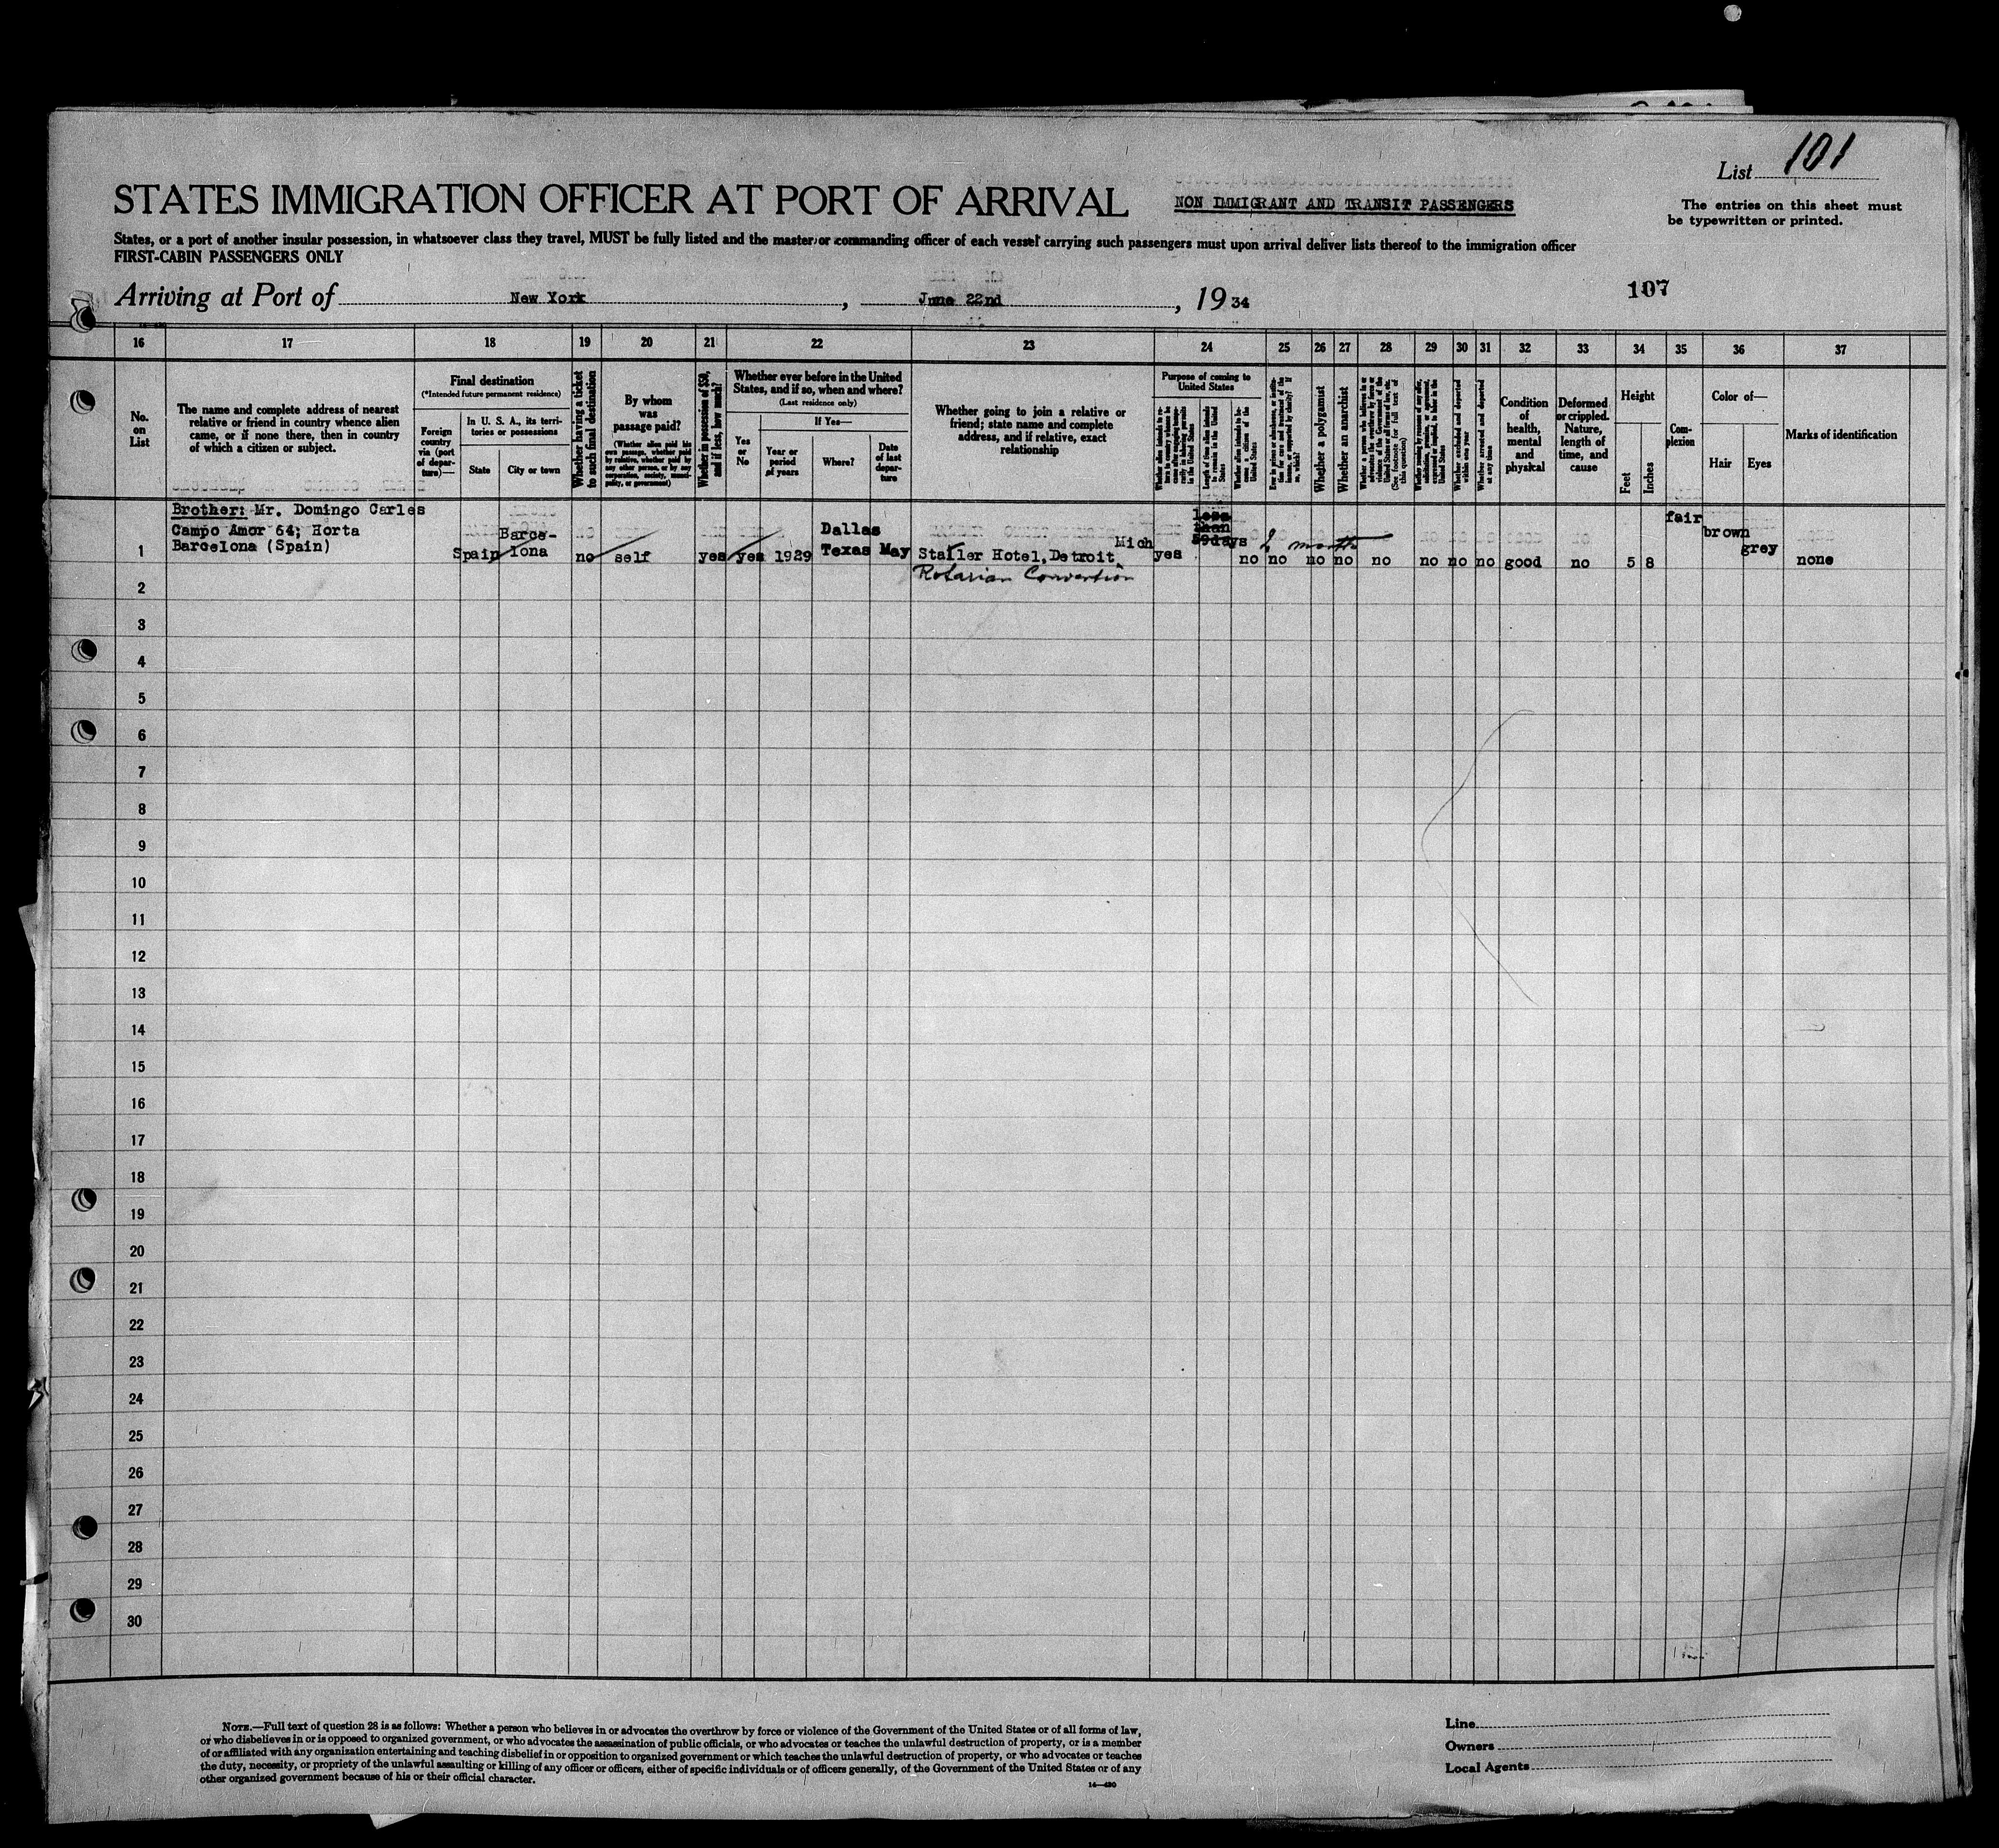 List 101
STATES IMMIGRATION OFFICER AT PORT OF ARRIVAL
NON IMMIGRANT AND TRANSIT PASSENGERS
The entries on this sheet must
be typewritten or printed.
States, or a port of another insular possession, in whatsoever class they travel, MUST be fully listed and the master or commanding officer of each vessel carrying such passengers must upon arrival deliver lists thereof to the immigration officer
FIRST-CABIN PASSENGERS ONLY
Arriving at Port of New York, June 22nd, 19 34
107
16 17 18 19 20 21 22 23 24 25 26 27 28 29 30 31 32 33 34 35 36 37
No.
on
List
The name and complete address of nearest
relative or friend in country whence alien
came, or if none there, then in country
of which a citizen or subject.
Final destination
(*Intended future permanent residence)
Foreign
country
via (port
of depar-
ture)—
In U. S. A., its terri-
tories or possessions
State
City or town
Whether having a ticket
to such final destination
By whom
was
passage paid?
(Whether alien paid his
own passage, whether paid
by relative, whether paid by
any other person, or by any
corporation, society, munici-
pality, or government)
Whether in possession of $50,
and if less, how much?
Whether ever before in the United
States, and if so, when and where?
(Last residence only)
Yes
or
No
If Yes—
Year or
period
of years
Where?
Date
of last
depar-
ture
Whether going to join a relative or
friend; state name and complete
address, and if relative, exact
relationship
Purpose of coming to
United States
Length of time alien intends
to remain in the United
States
Whether alien intends to be-
come a citizen of the
United States
Whether a polygamist
Whether an anarchist
(See footnote for full text of
this question)
Whether excluded and deported
within one year
Whether arrested and deported
at any time
Condition
of
health,
mental
and
physical
Deformed
or crippled.
Nature,
length of
time, and
cause
Height
Feet
Inches
Com-
plexion
Color of—
Hair
Eyes
Marks of identification
Brother: Mr. Domingo Carles
Campo Amor 64; Horta
Barcelona (Spain)
1 Spain Barce-
lona no self yes yes 1929 Dallas
Texas May Statler Hotel, Detroit Mich
Rotarian Convention
yes less
than
59days 2 months no no no no no no no no good no 5 8 fair brown grey none
2
3
4
5
6
7
8
9
10
11
12
13
14
15
16
17
18
19
20
21
22
23
24
25
26
27
28
29
30
NOTE.—Full text of question 28 is as follows: Whether a person who believes in or advocates the overthrow by force or violence of the Government of the United States or of all forms of law,
or who disbelieves in or is opposed to organized government, or who advocates the assassination of public officials, or who advocates or teaches the unlawful destruction of property, or is a member
of or affiliated with any organization entertaining and teaching disbelief in or opposition to organized government or which teaches the unlawful destruction of property, or who advocates or teaches
the duty, necessity, or propriety of the unlawful assaulting or killing of any officer or officers, either of specific individuals or of officers generally, of the Government of the United States or of any
other organized government because of his or their official character.
14—430
Line
Owners
Local Agents